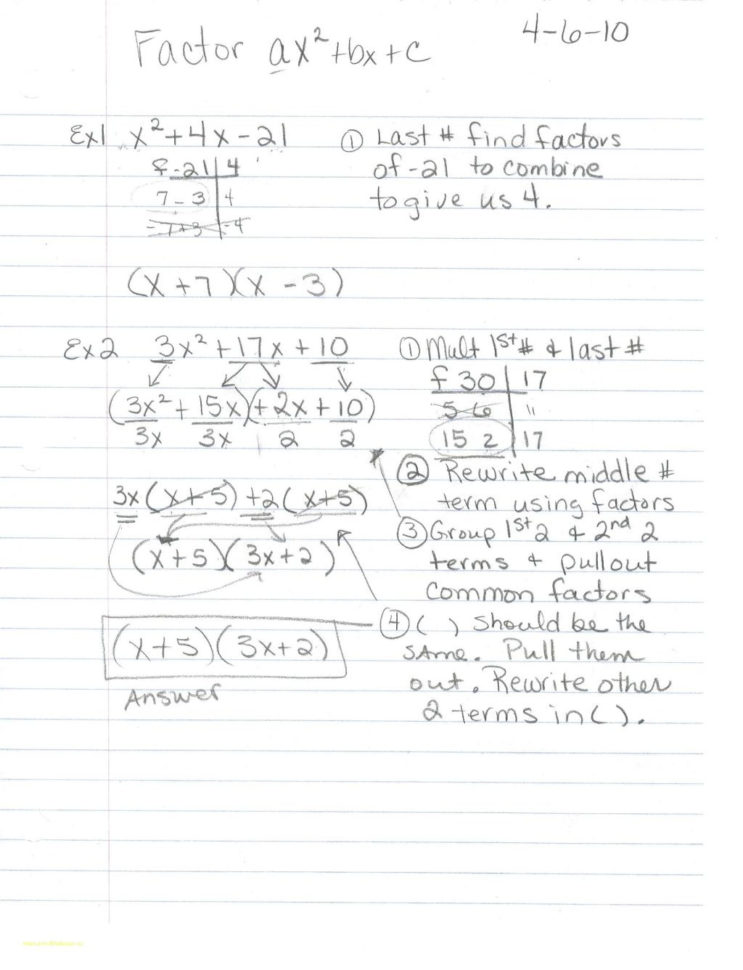 Factor ax²+bx+c 4-6-10
Ex1 x²+4x-21 ① Last # find factors
f -21 | 4 of -21 to combine
7 -3 | 4 to give us 4.
-7+3 | -4
(x+7)(x-3)
Ex2 3x²+17x+10 ① Mult 1st # & last #
f 30 | 17
(3x²+15x)(+2x+10) 5 6 | 11
3x 3x 2 2 15 2 | 17
② Rewrite middle #
3x(x+5)+2(x+5) term using factors
③ Group 1st 2 & 2nd 2
(x+5)(3x+2) terms & pullout
common factors
④ ( ) should be the
(x+5)(3x+2) same. Pull them
Answer out. Rewrite other
2 terms in ( ).